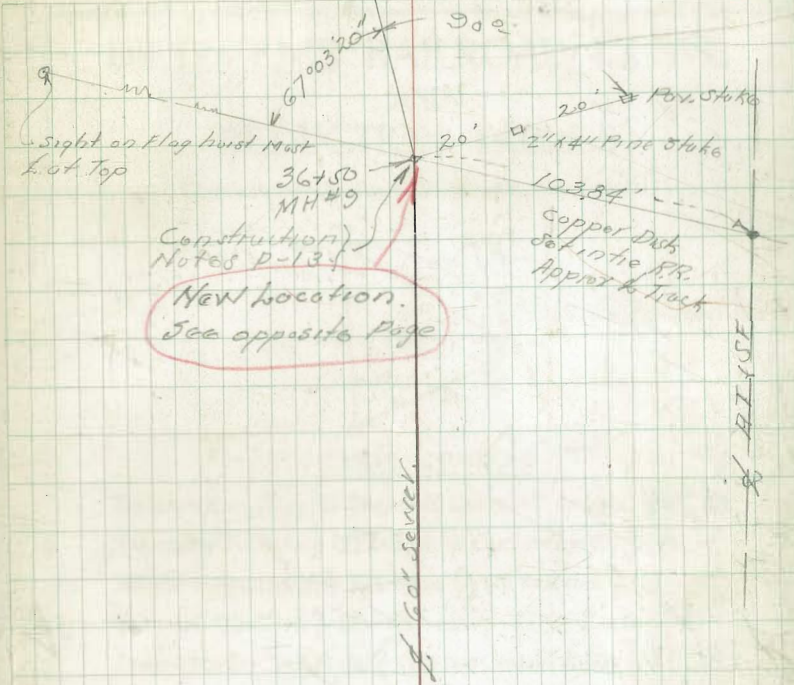 90°
67°03'20"
20'
Pav. Stake
Sight on Flag hoist Mast
℄ at Top
20'
2"x4" Pine Stake
36+50
MH #9
103.84'
Copper Disk
Set in tie R.R.
Approx ℄ Track
Construction
Notes P-13
New Location.
See opposite Page
℄ AT&SF
℄ 60" Sewer